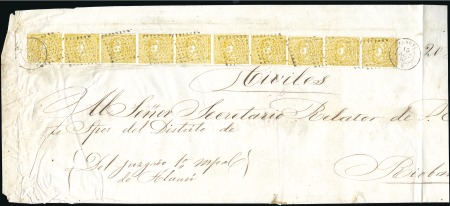 20
Civiles
Al Señor Secretario Relator de
del Distrito de
Del juzgado 1o mpal
de Alausí
Riobam